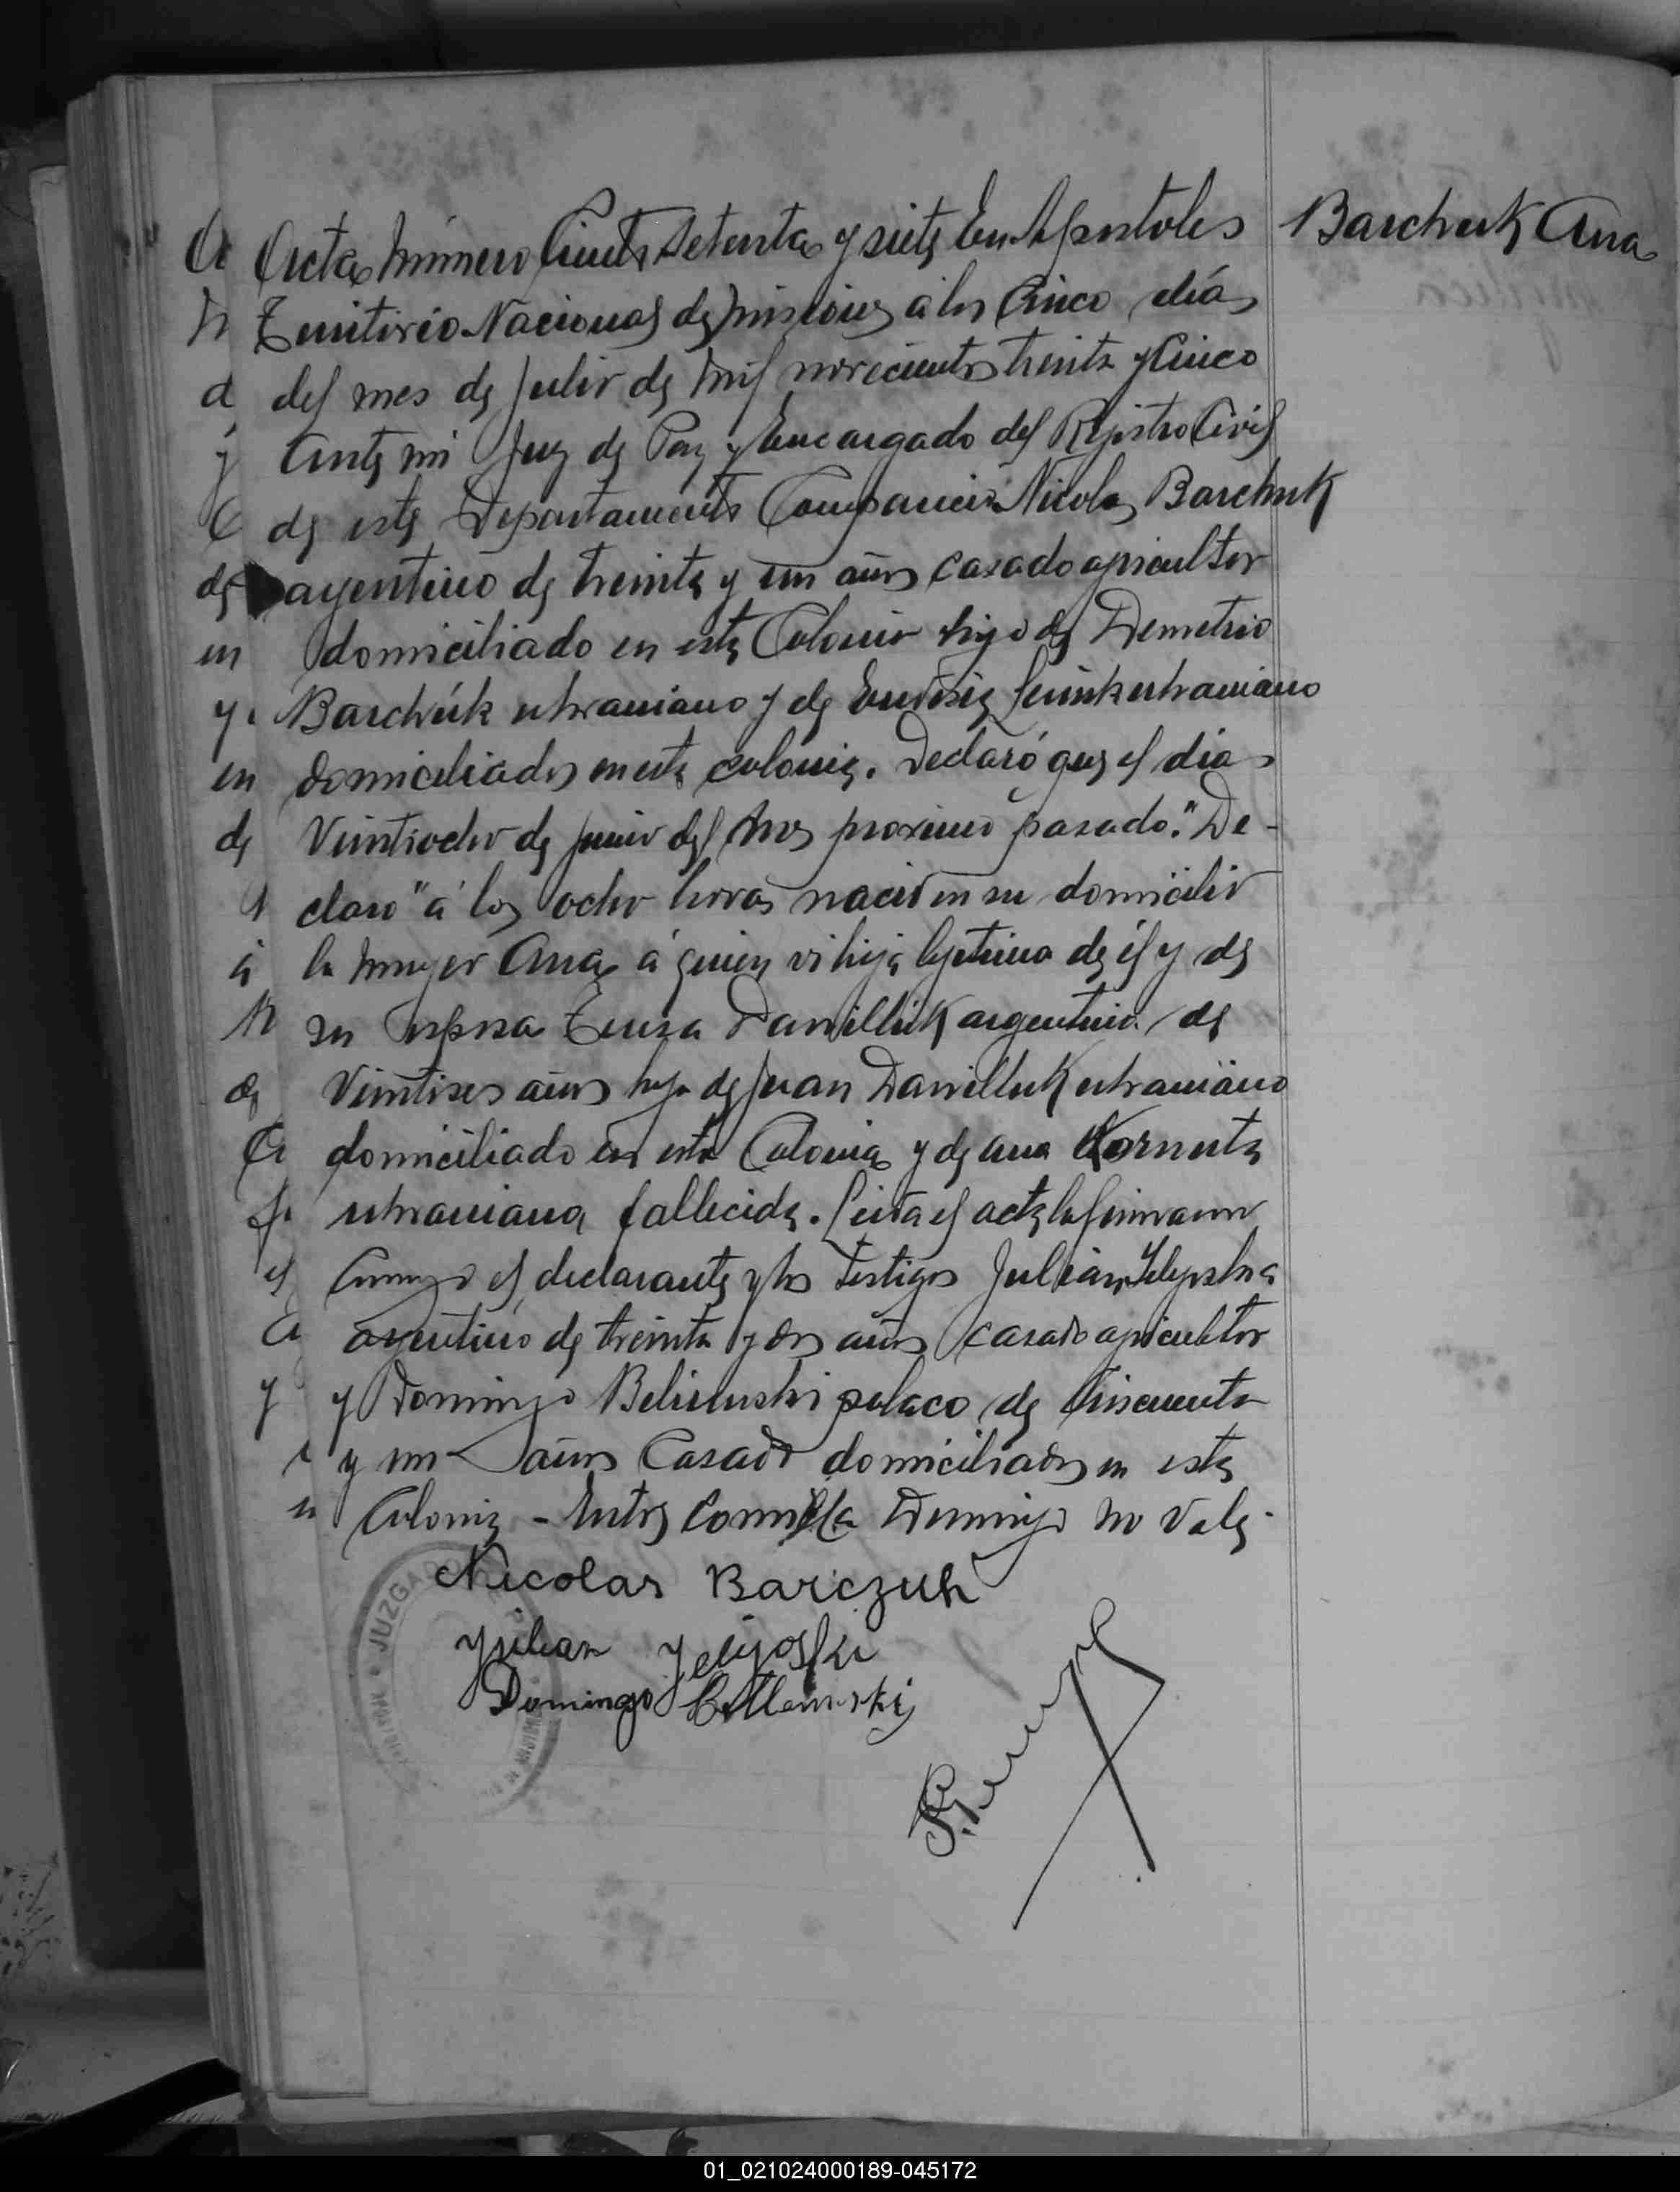 Acta Número Ciento Setenta y siete En Apostoles
Barchuk Ana
Territorio Nacional de Misiones a los Cinco días
del mes de Julio de mil novecientos treinta y Cinco
Ante mi Juez de Paz y Encargado del Rejistro Civil
de este Departamento Compareció Nicolas Barchuk
argentino de treinta y un años casado agricultor
domiciliado en esta Colonia hijo de Demetrio
Barchuk ukraniano y de ukraniano
domiciliados en esta colonia. Declaró que el dia
Veintiocho de Junio del mes proximo pasado. "De-
claro" á las ocho horas nació en su domicilio
la mujer Ana á quien vi hija lejitima de él y de
su esposa Teresa Danilluk argentina de
Veintises años hija de Juan Danilluk ukraniano
domiciliado en esta Colonia y de Ana Kornuta
ukraniana fallecida. Leida el acta la firmaron
Conmigo el declarante y los testigos Julian
argentino de treinta y dos años casado agricultor
y Domingo polaco de Cincuenta
y un años Casado domiciliados en esta
Colonia - Entre Domingo no Vale.
Nicolas Barczuk
Julian
Domingo
JUZGADO
01_021024000189-045172